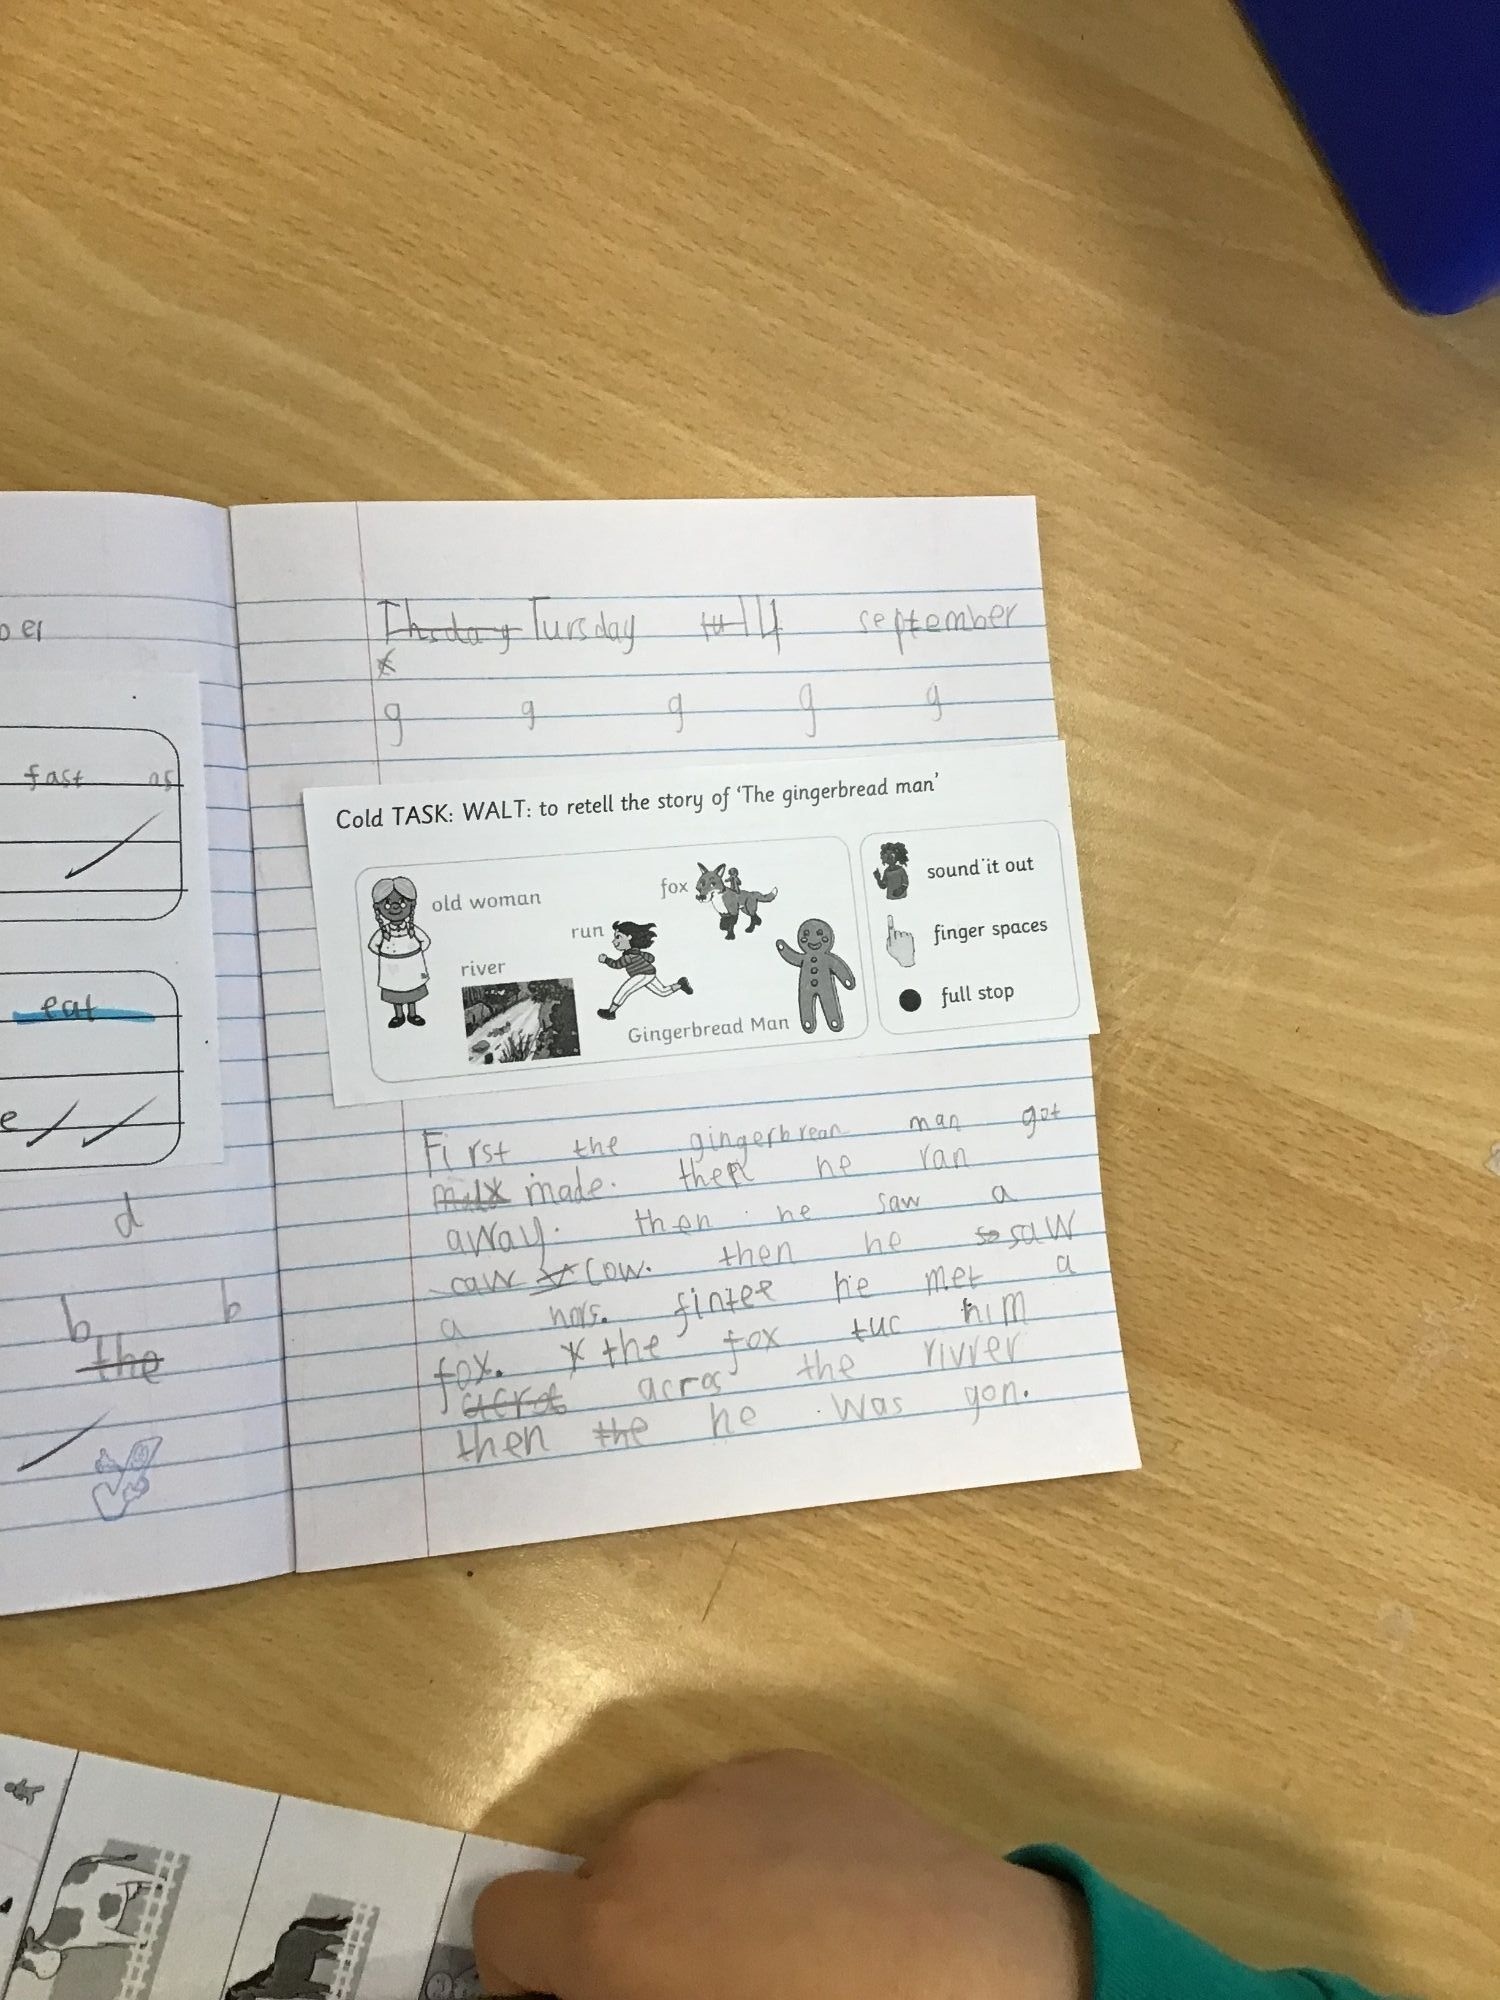 fast as
eat
e
d
b b
the
Thsday Tursday tu 14 september
g g g g g
Cold TASK: WALT: to retell the story of 'The gingerbread man'
old woman
river
run
fox
Gingerbread Man
sound it out
finger spaces
full stop
First the gingerbrean man got
made. then he ran
away. then he saw a
caw cow. then he so saw
a hors. fintee he met a
fox. the fox tuc him
acrot acros the rivrer
then the he was gon.